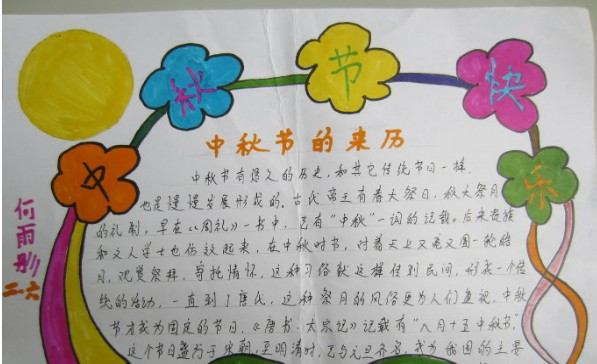 中秋节快乐
中秋节的来历
中秋节有悠久的历史，和其它传统节日一样，
也是慢慢发展形成的。古代帝王有春天祭日，秋天祭月
的礼制，早在《周礼》一书中，已有“中秋”一词的记载。后来贵族
和文人学士也仿效起来，在中秋时节，对着天上又亮又圆一轮皓
月，观赏祭拜，寄托情怀，这种习俗就这样传到民间，形成一个传
统的活动，一直到了唐代，这种祭月的风俗更为人们重视，中秋
节才成为固定的节日，《唐书·太宗记》记载有“八月十五中秋节”，
这个节日盛行于宋朝，至明清时，已与元旦齐名，成为我国的主要
何雨彤
二．六